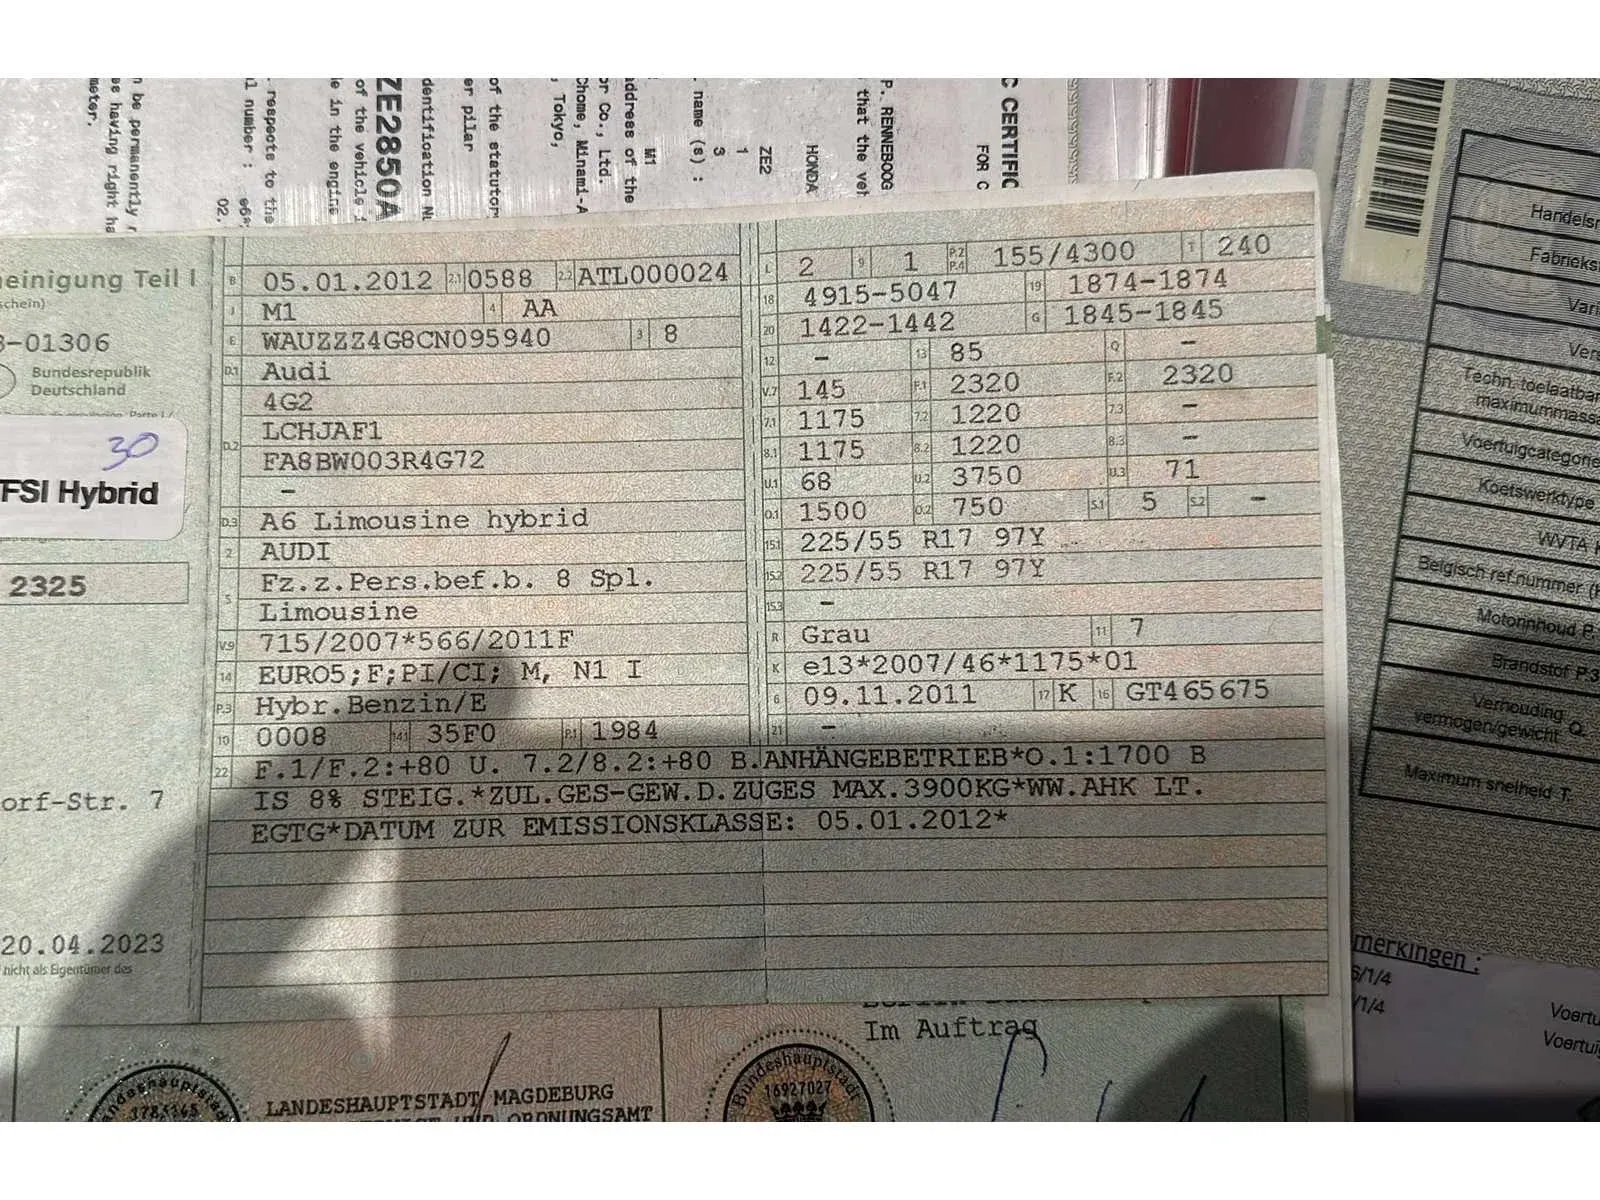 C CERTIFIC
FOR C
P. RENNEBOOG
that the veh
HONDA
ZE2
1
3
name (s) :
M1
address of the
or Co., Ltd.
Chome, Minami-A
, Tokyo,
of the statutor
er pilar
dentification Nu
ZE2850A
e in the engine
of the vehicle i
respects to the
l number : e6*
02.
n be permanently r
s having right ha
meter.
Handelsn
Fabrieks
Vari
Vers
Techn. toelaatbar
maximummassa
Voertuigcategorie
Koetswerktype
WVTA
Belgisch ref.nummer (
Motorinhoud P.
Brandstof P.3
Verhouding Q.
vermogen/gewicht
Maximum snelheid T.
merkingen :
6/1/4
/1/4
Voertu
Voertuig
einigung Teil I
schein)
3-01306
Bundesrepublik
Deutschland
30
FSI Hybrid
2325
orf-Str. 7
20.04.2023
nicht als Eigentümer des
B 05.01.2012 2.1 0588 2.2 ATL000024
J M1 4 AA
E WAUZZZ4G8CN095940 3 8
D.1 Audi
4G2
LCHJAF1
D.2 FA8BW003R4G72
–
D.3 A6 Limousine hybrid
2 AUDI
5 Fz.z.Pers.bef.b. 8 Spl.
Limousine
V.9 715/2007*566/2011F
14 EURO5;F;PI/CI; M, N1 I
P.3 Hybr.Benzin/E
10 0008 14.1 35F0 P.1 1984
L 2 9 1 P.2 P.4 155/4300 T 240
18 4915-5047 19 1874-1874
20 1422-1442 G 1845-1845
12 – 13 85 Q –
V.7 145 F.1 2320 F.2 2320
7.1 1175 7.2 1220 7.3 –
8.1 1175 8.2 1220 8.3 –
U.1 68 U.2 3750 U.3 71
O.1 1500 O.2 750 S.1 5 S.2 –
15.1 225/55 R17 97Y
15.2 225/55 R17 97Y
15.3 –
R Grau 11 7
K e13*2007/46*1175*01
6 09.11.2011 17 K 16 GT465675
21 –
22 F.1/F.2:+80 U. 7.2/8.2:+80 B.ANHÄNGEBETRIEB*O.1:1700 B
IS 8% STEIG.*ZUL.GES-GEW.D.ZUGES MAX.3900KG*WW.AHK LT.
EGTG*DATUM ZUR EMISSIONSKLASSE: 05.01.2012*
Im Auftrag
LANDESHAUPTSTADT MAGDEBURG
ORDNUNGSAMT
Bundeshauptstadt
16927027